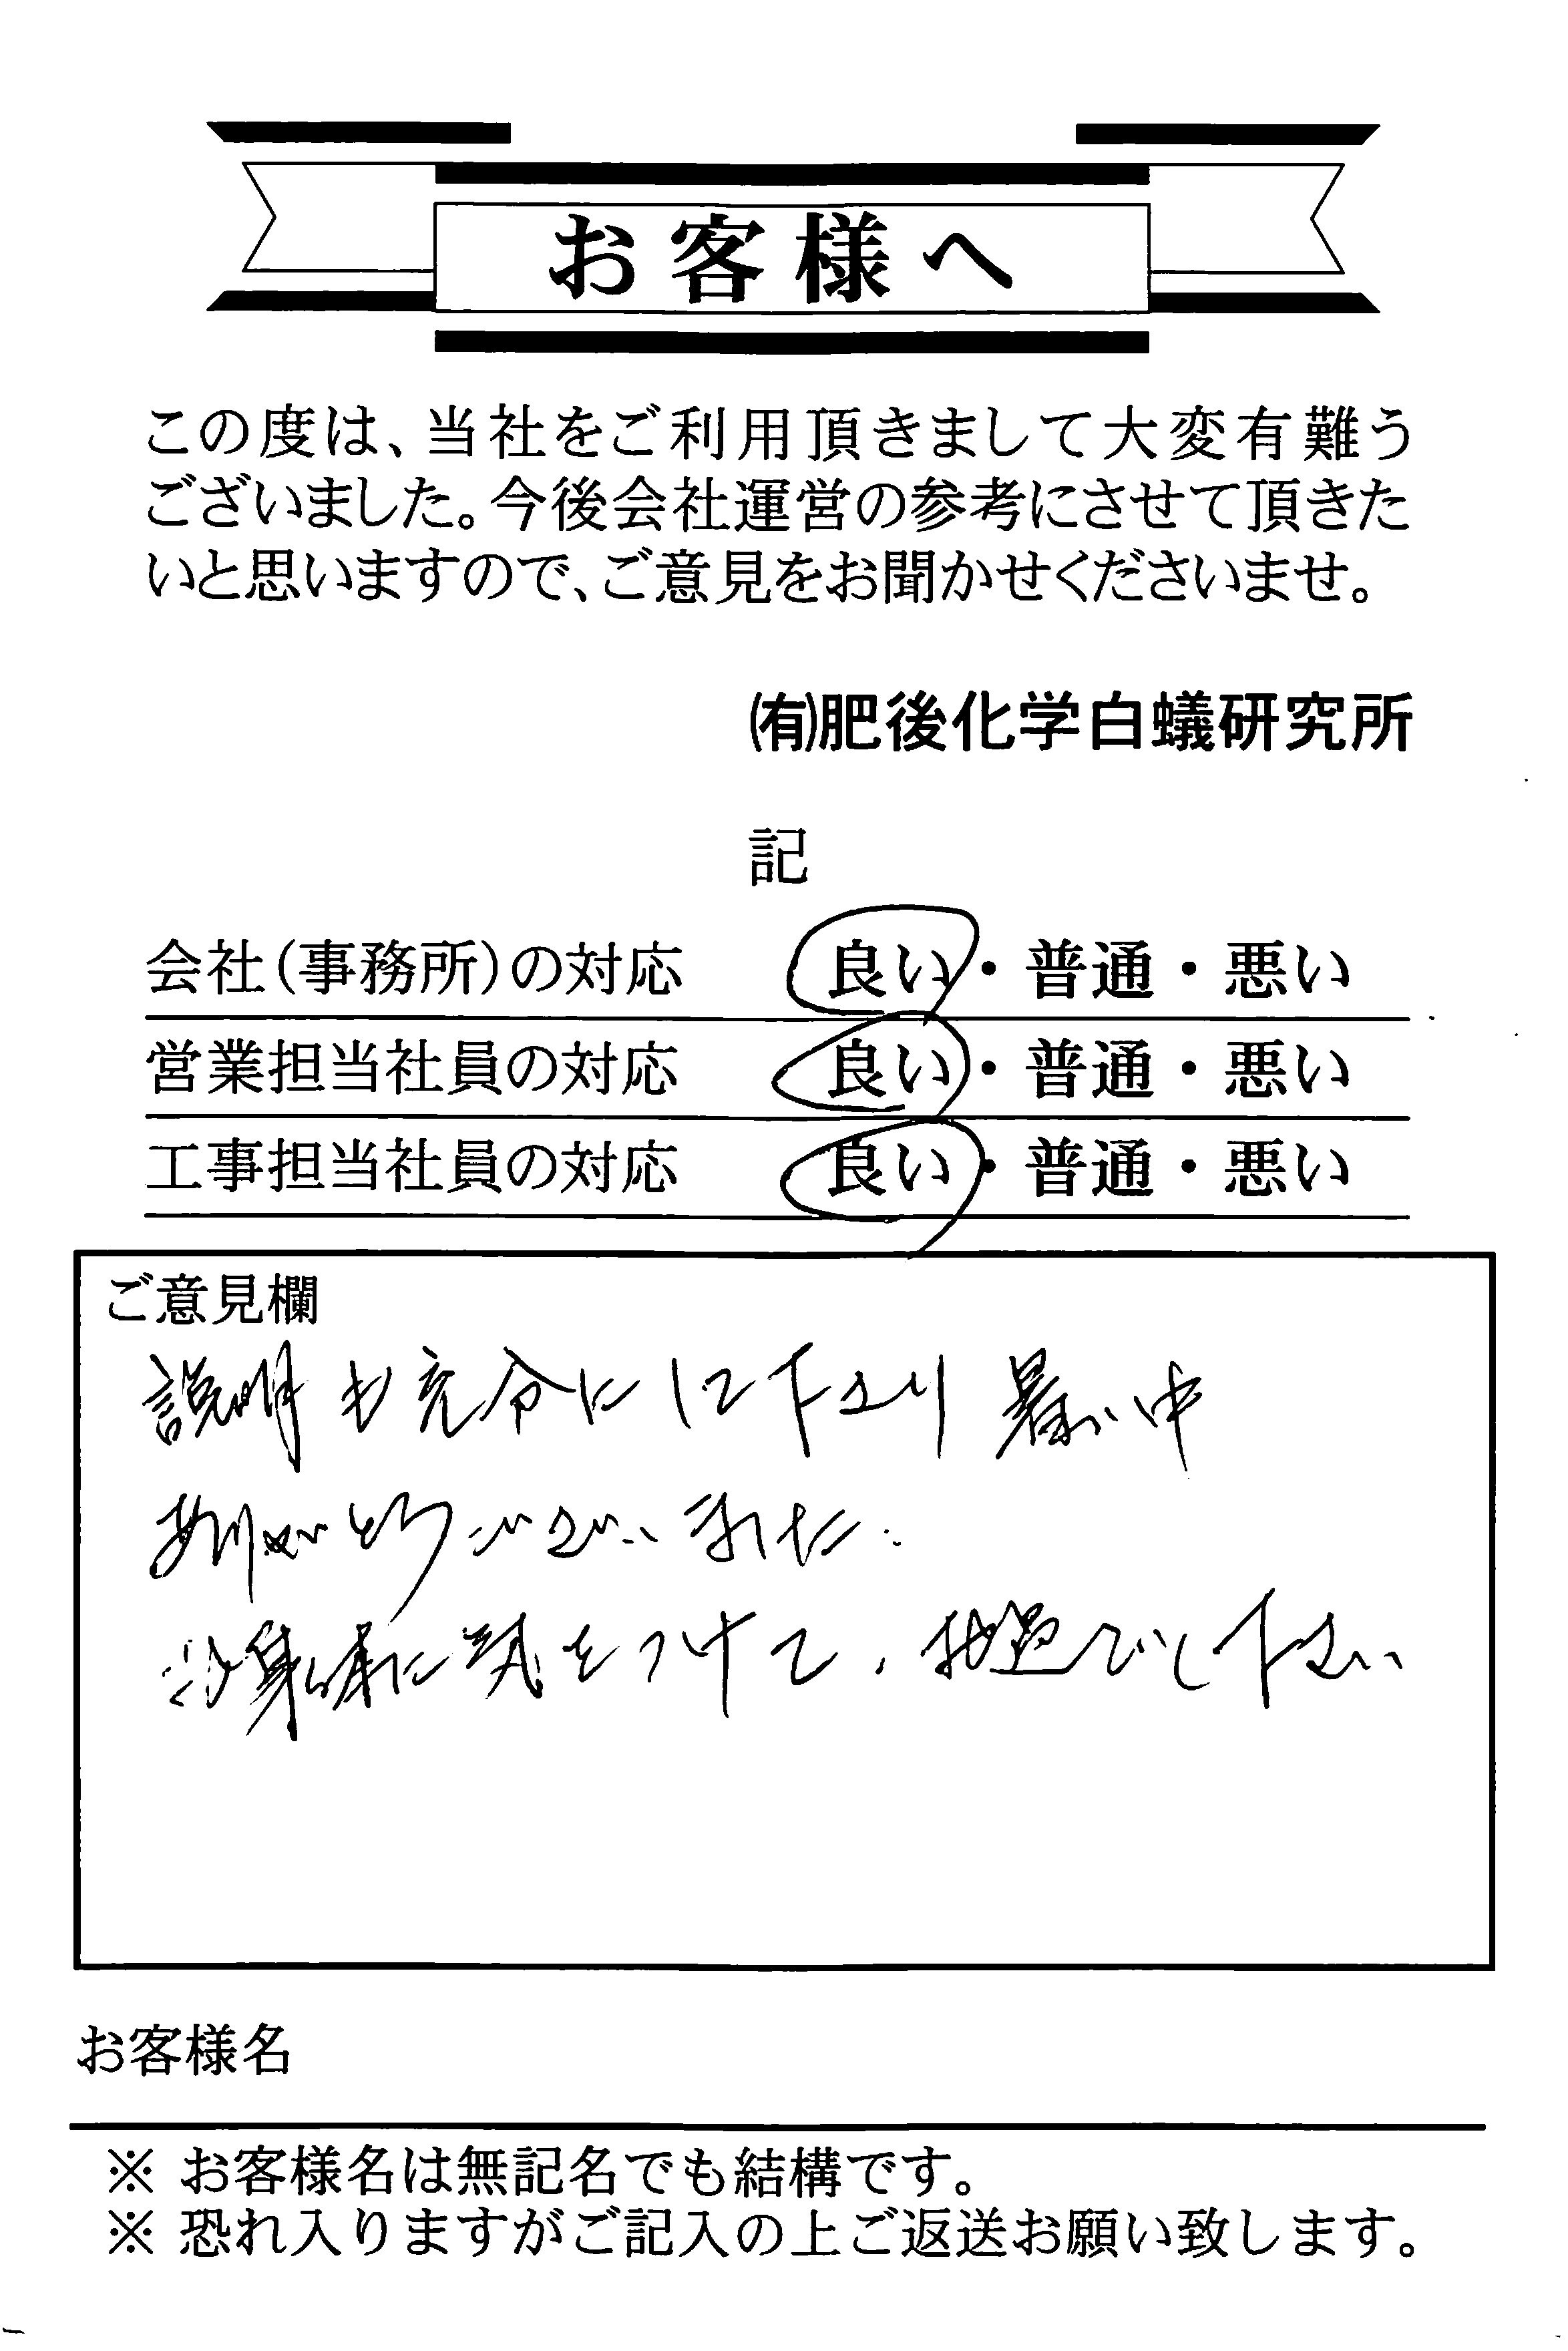 お客様へ
この度は、当社をご利用頂きまして大変有難う
ございました。今後会社運営の参考にさせて頂きた
いと思いますので、ご意見をお聞かせくださいませ。
㈲肥後化学白蟻研究所
記
会社(事務所)の対応 良い・普通・悪い
営業担当社員の対応 良い・普通・悪い
工事担当社員の対応 良い・普通・悪い
ご意見欄
説明も充分にして下さり 暑い中
ありがとうございました.
お身体に気をつけて、お過ごし下さい
お客様名
※ お客様名は無記名でも結構です。
※ 恐れ入りますがご記入の上ご返送お願い致します。